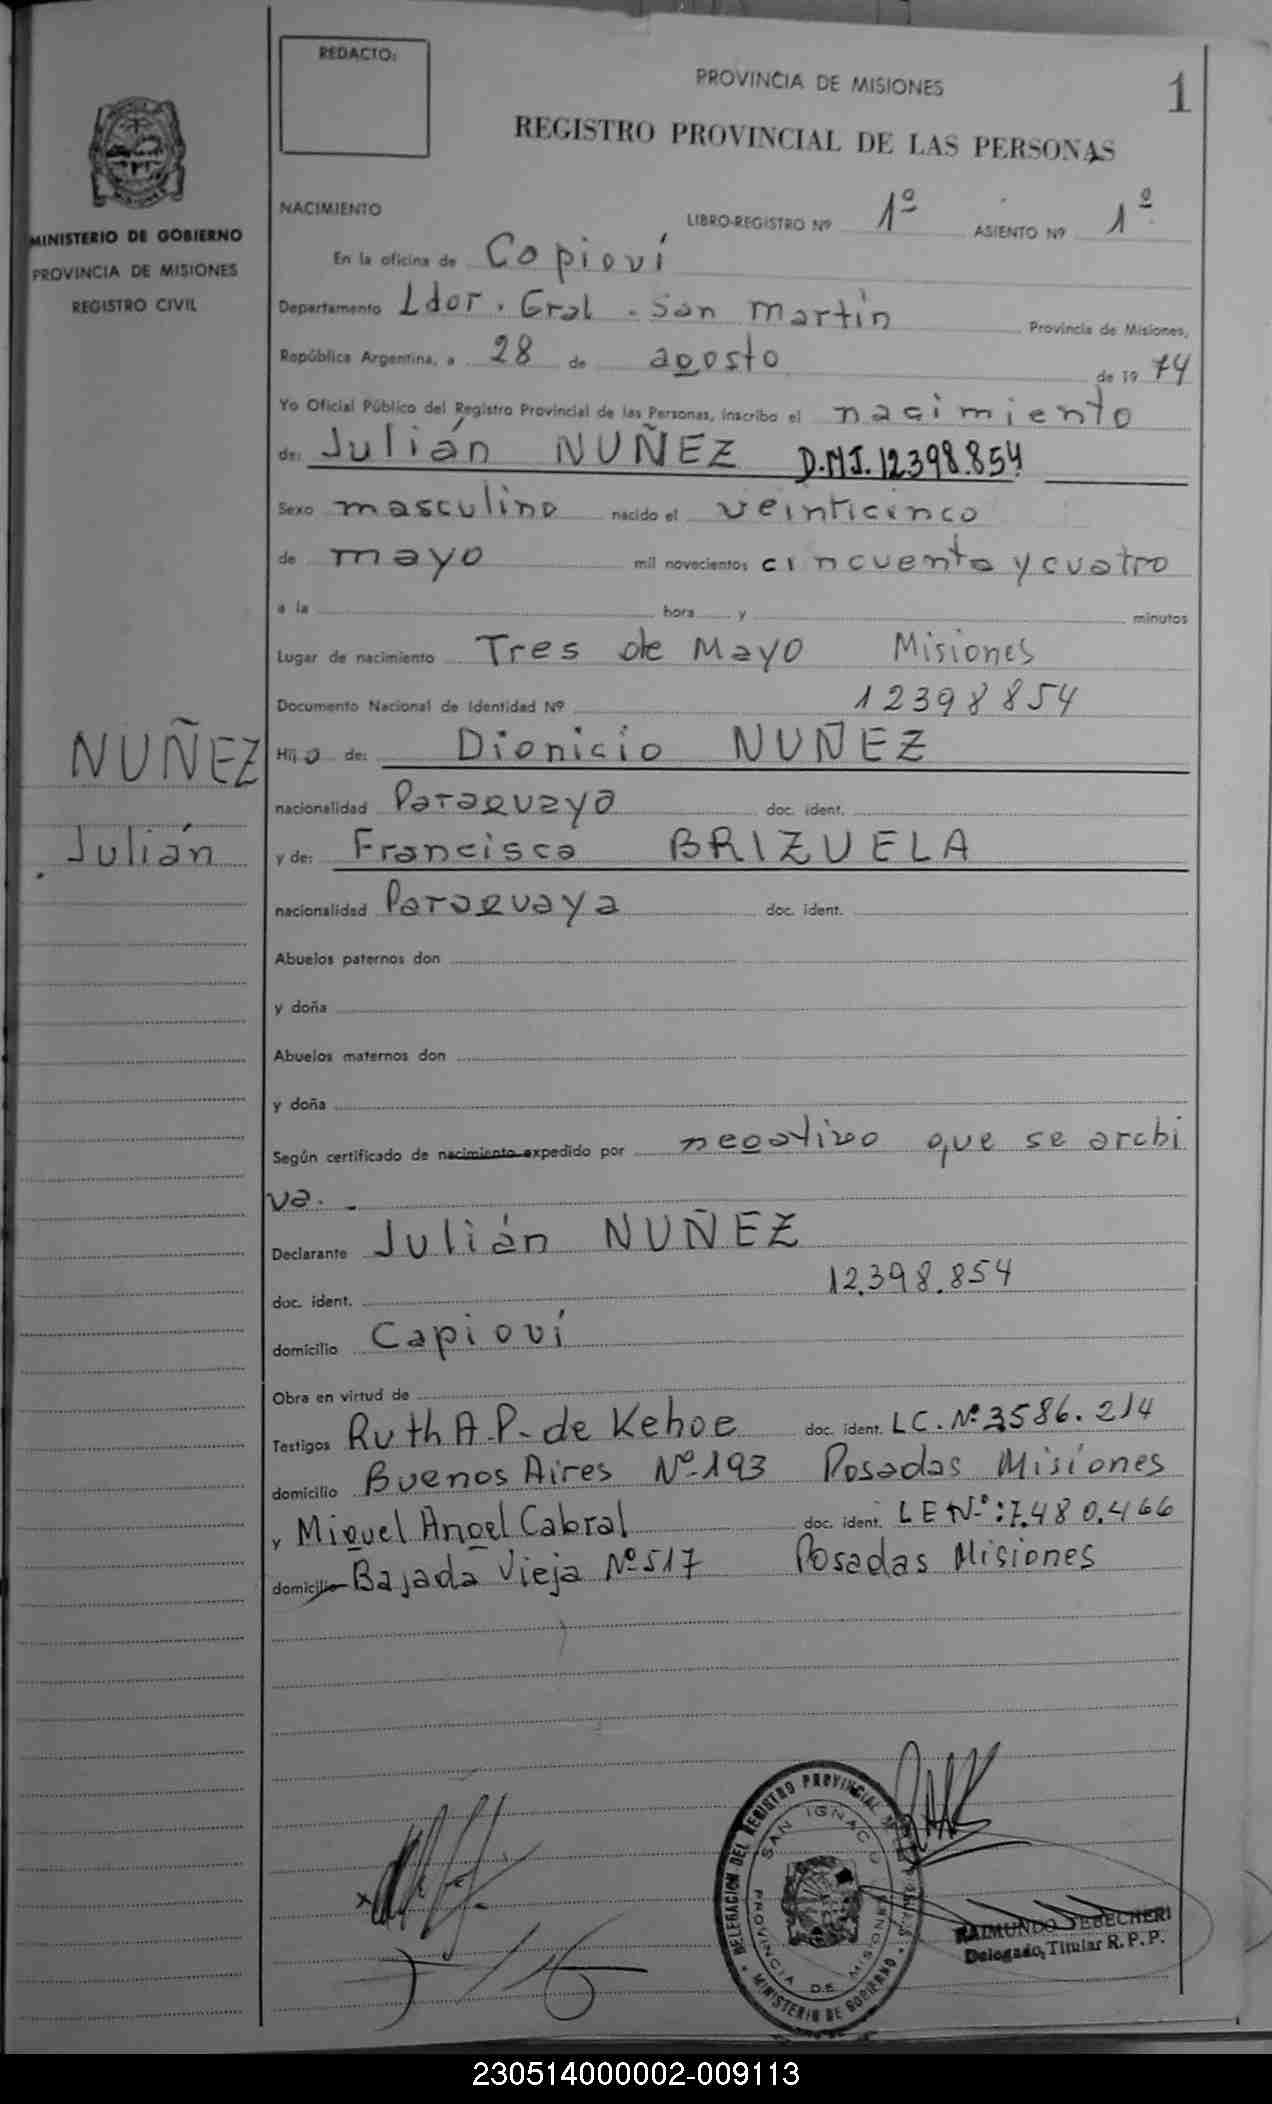 REDACTO:
PROVINCIA DE MISIONES
1
REGISTRO PROVINCIAL DE LAS PERSONAS
MINISTERIO DE GOBIERNO
PROVINCIA DE MISIONES
REGISTRO CIVIL
NUÑEZ
Julián
NACIMIENTO LIBRO-REGISTRO Nº 1º ASIENTO Nº 1º
En la oficina de Capioví
Departamento Ldor. Gral. San Martín Provincia de Misiones,
República Argentina, a 28 de agosto de 19 74
Yo Oficial Público del Registro Provincial de las Personas, inscribo el nacimiento
de: Julián NUÑEZ D.N.I. 12.398.854
Sexo masculino nacido el veinticinco
de mayo mil novecientos cincuenta y cuatro
a la hora y minutos
Lugar de nacimiento Tres de Mayo Misiones
Documento Nacional de Identidad Nº 12398854
Hijo de: Dionicio NUÑEZ
nacionalidad Paraguaya doc. ident.
y de: Francisca BRIZUELA
nacionalidad Paraguaya doc. ident.
Abuelos paternos don
y doña
Abuelos maternos don
y doña
Según certificado de nacimiento expedido por negativo que se archi
va.
Declarante Julián NUÑEZ
doc. ident. 12.398.854
domicilio Capioví
Obra en virtud de
Testigos Ruth A. P. de Kehoe doc. ident. LC. Nº 3586.214
domicilio Buenos Aires Nº 193 Posadas Misiones
y Miguel Angel Cabral doc. ident. LE Nº: 7.480.466
domicilio Bajada Vieja Nº 517 Posadas Misiones
DELEGACION DEL REGISTRO PROVINCIAL
SAN IGNACIO
PROVINCIA DE MISIONES
MINISTERIO DE GOBIERNO
RAIMUNDO
Delegado Titular R. P. P.
230514000002-009113